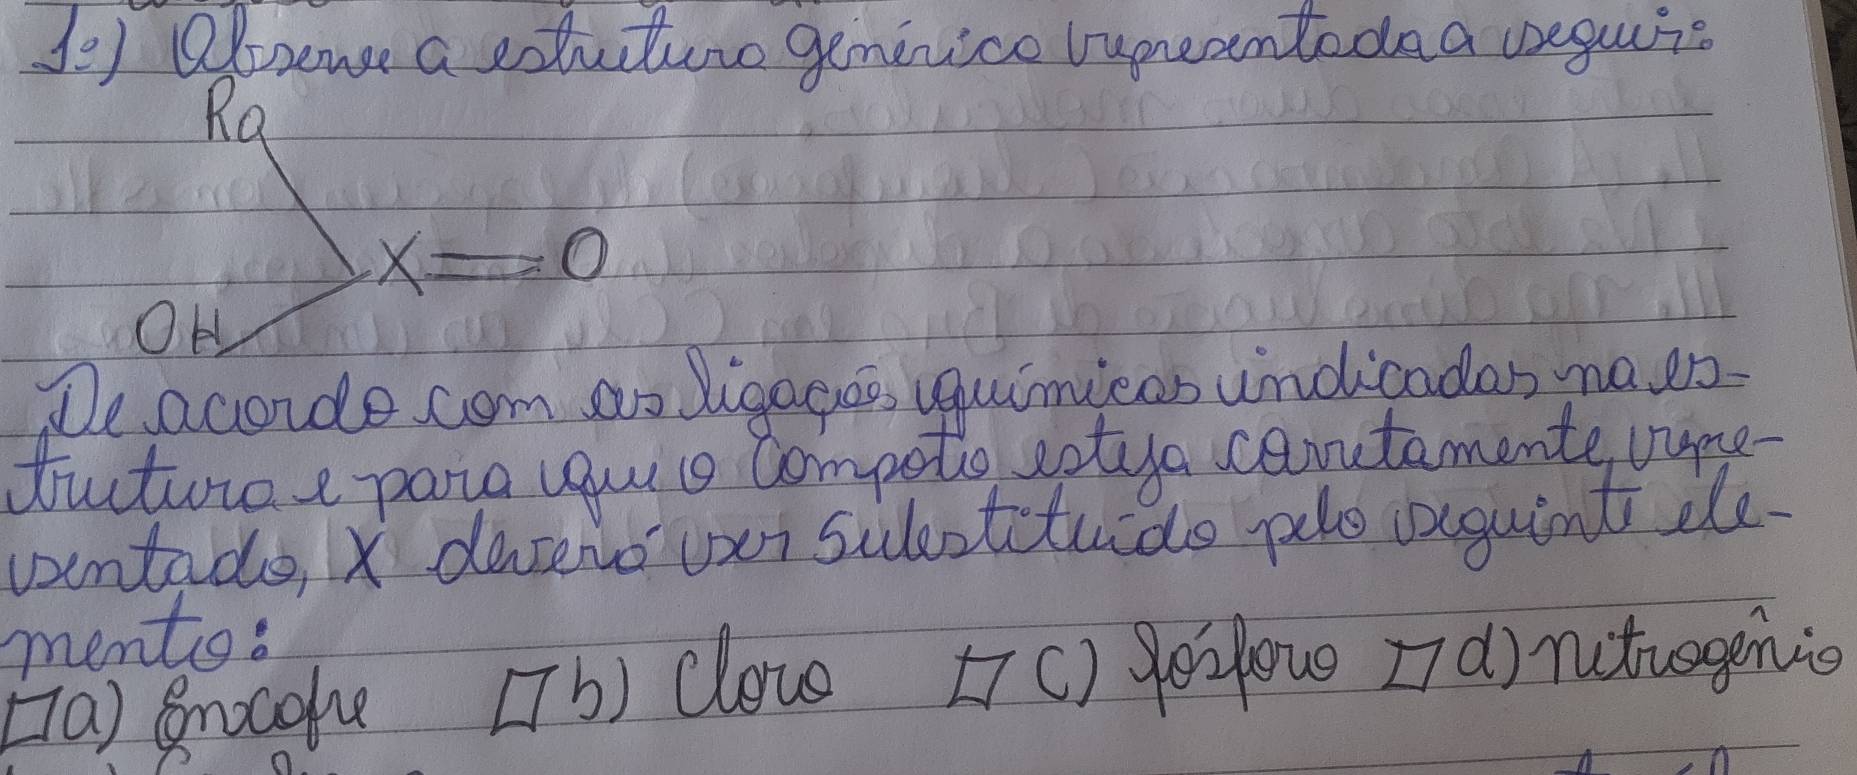 1º) Observe a estrutura genérica representada a seguir:
Ra
X=O
OH
De acordo com as ligações químicas indicadas na es-
trutura e para que o composto esteja corretamente, repre-
sentado, X deverá ser substituído pelo seguinte ele-
mento:
a) Enxofre b) Cloro c) fósforo d) nitrogênio